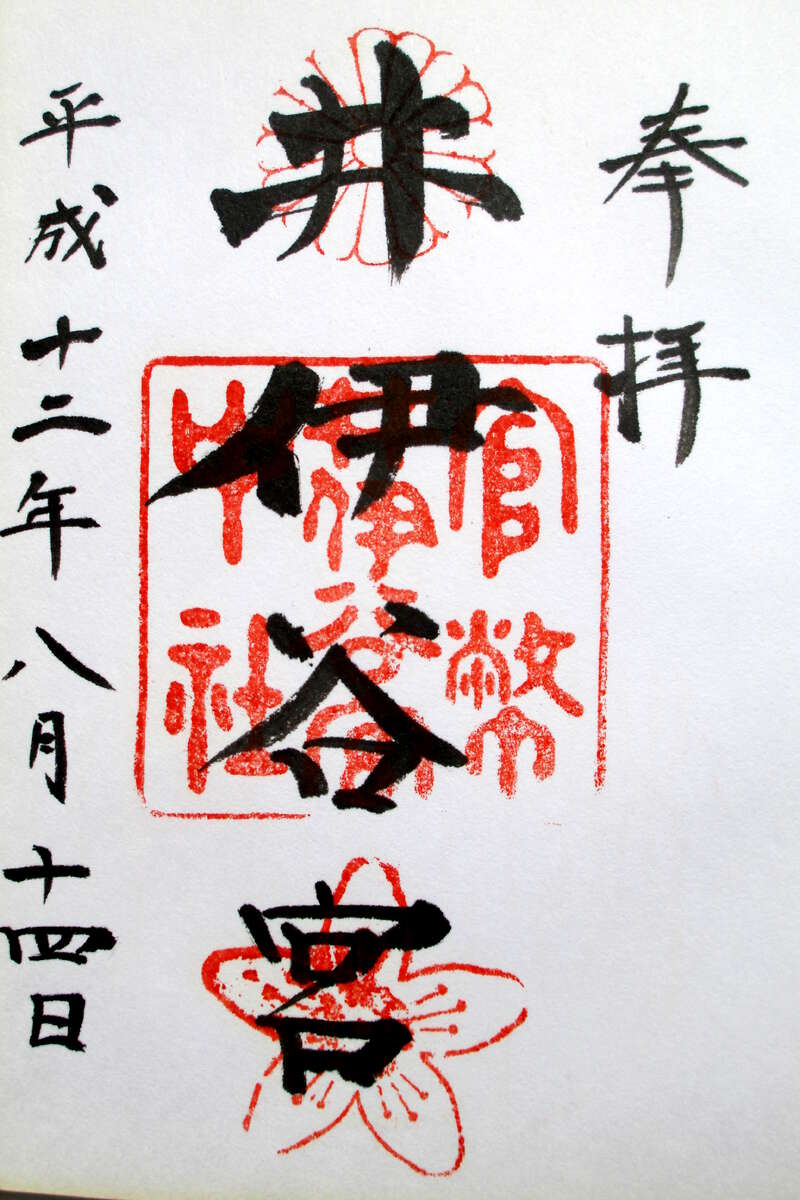 奉拝
井伊谷宮
官幣
中社
井伊谷宮
平成十二年八月十四日